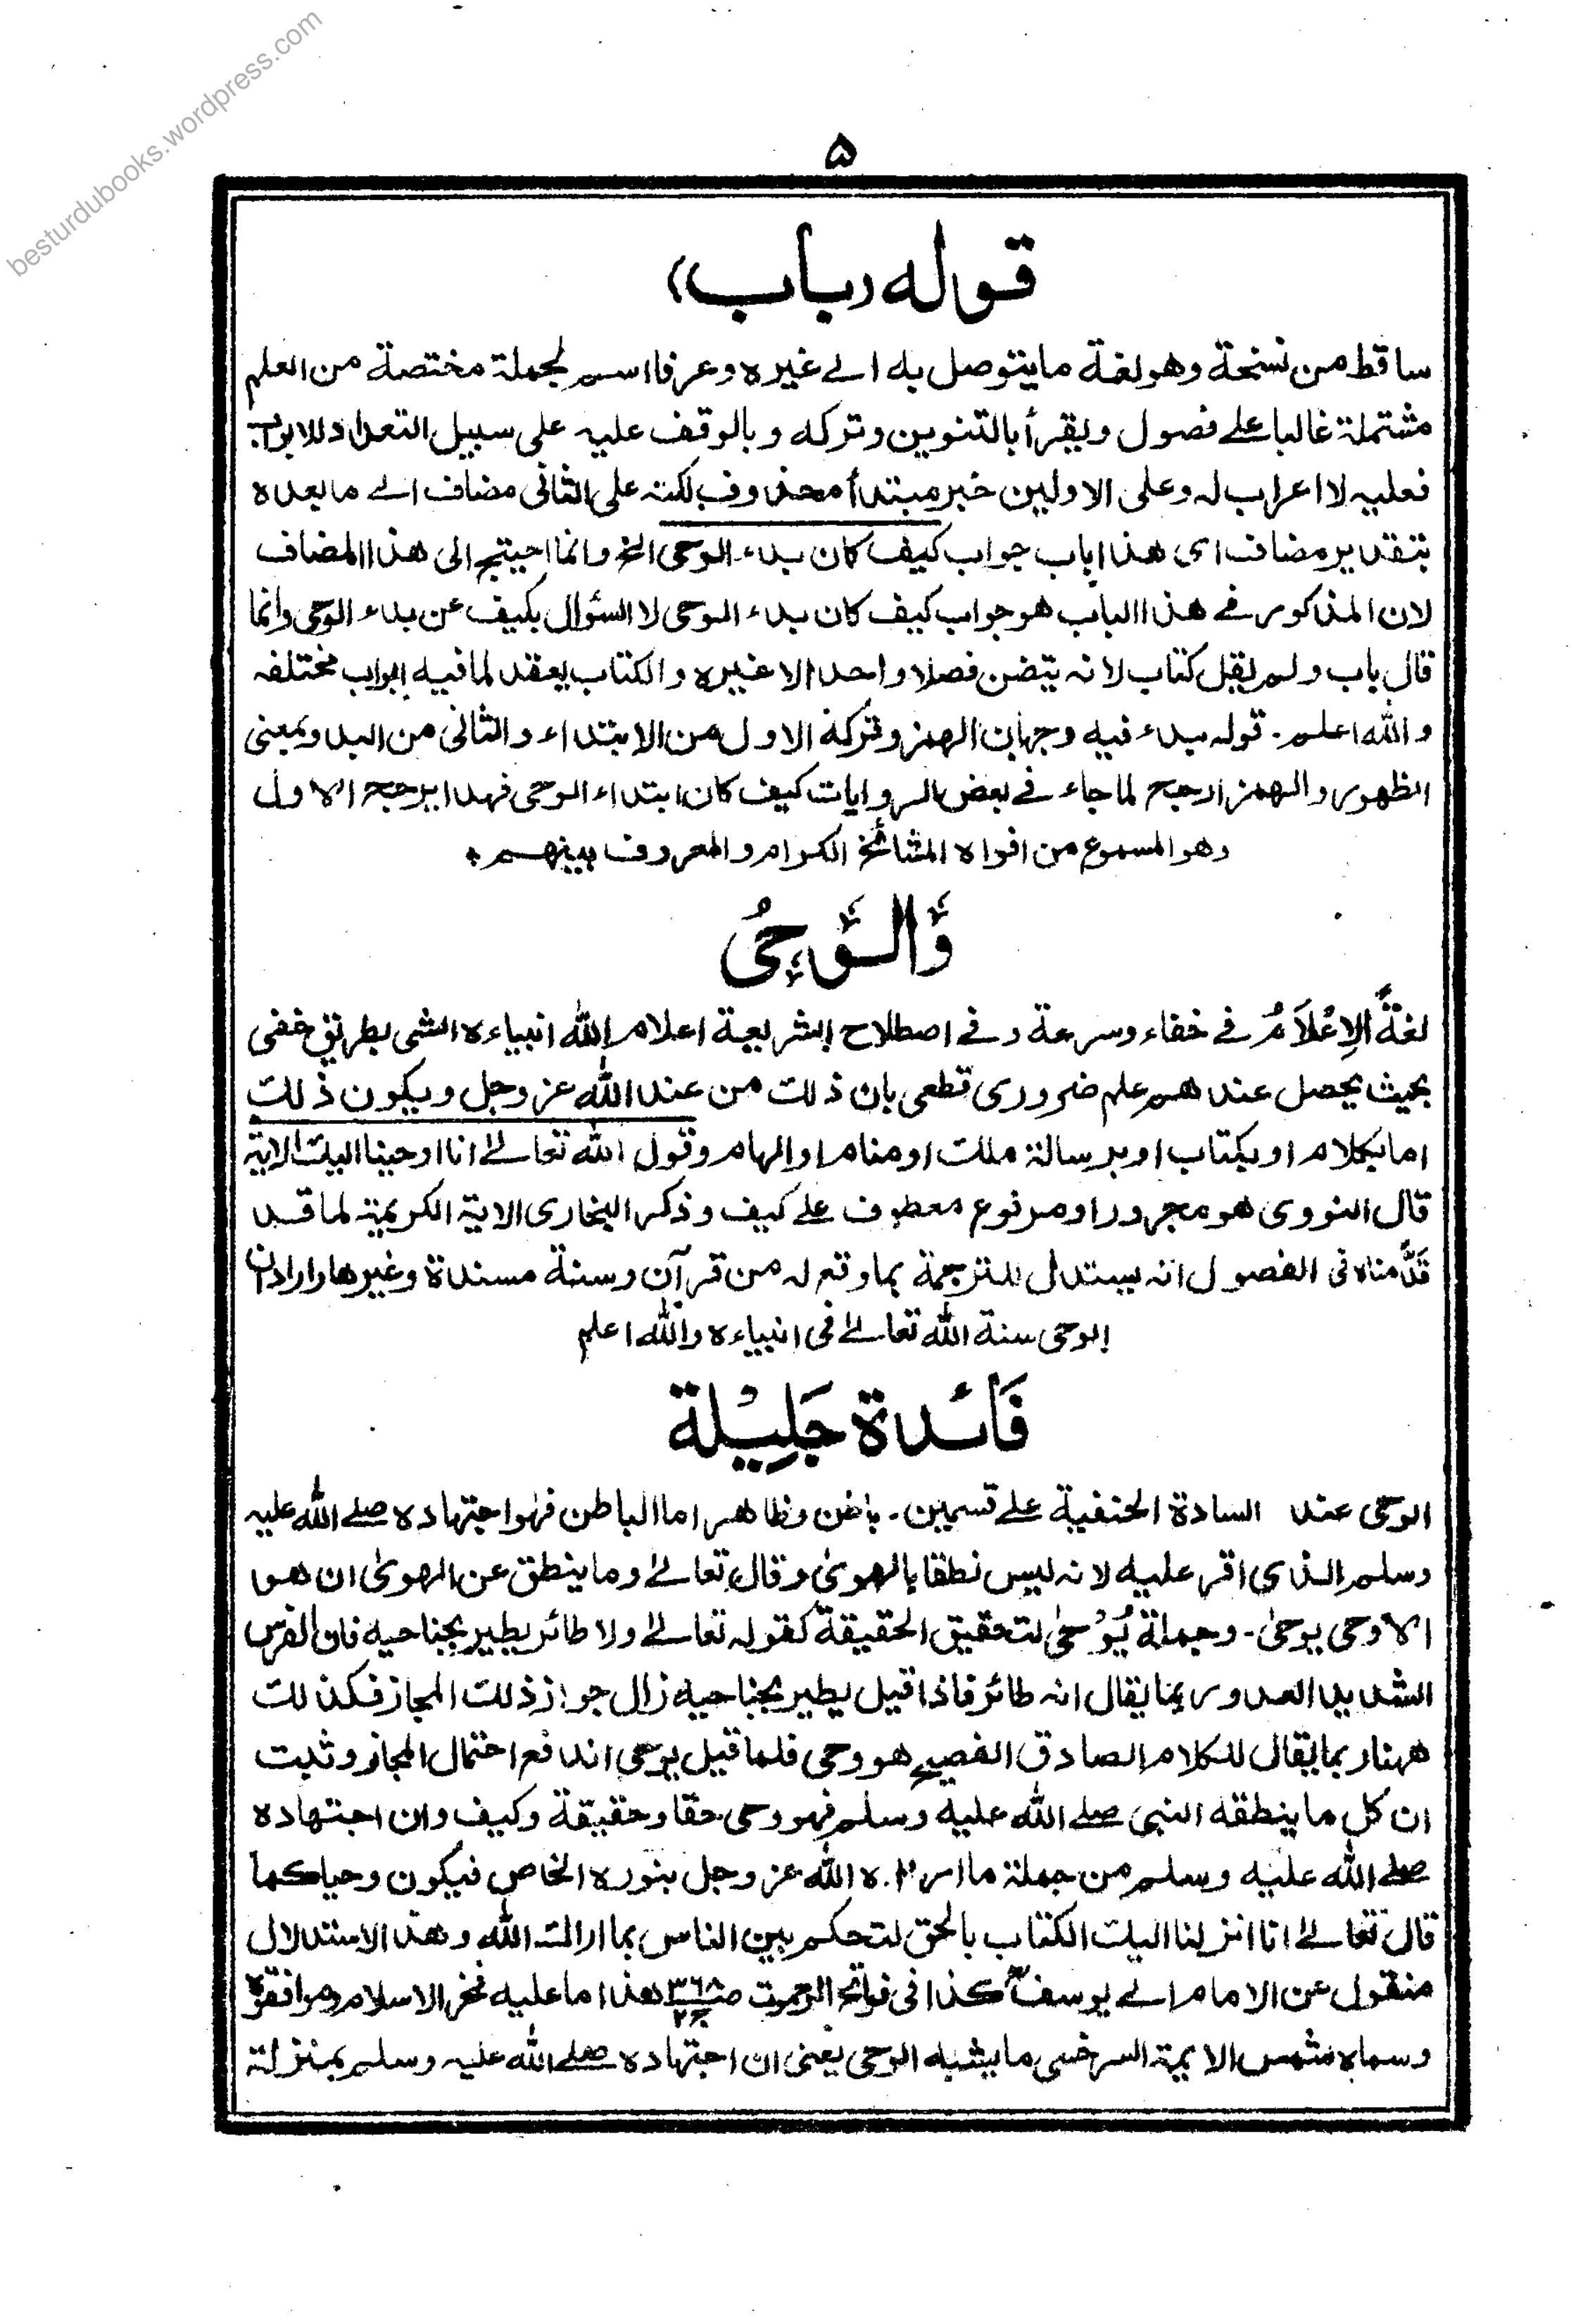 besturdubooks.wordpress.com
۵
قوله (باب)
ساقط من نسخة وهو لغة ما يتوصل به الى غيره وعرفا اسم لجملة مختصة من العلم
مشتملة غالبا على فصول ويقرأ بالتنوين وتركه وبالوقف عليه على سبيل التعداد للابواب
فعليه لا اعراب له وعلى الاولين خبر مبتدأ محذوف لكنه على الثاني مضاف الى ما بعده
بتقدير مضاف اى هذا باب جواب كيف كان بدء الوحى الخ وانما احيتج الى هذا المضاف
لان المذكور فى هذا الباب هو جواب كيف كان بدء الوحى لا السؤال بكيف عن بدء الوحى وانما
قال باب ولم يقل كتاب لانه يتضن فصلا واحدا لا غيره والكتاب يعقد لما فيه ابواب مختلفه
والله اعلم۔ قوله بدء فيه وجهان الهمز وتركه الاول من الابتداء والثانى من البدو بمعنى
الظهور والهمز ارجح لما جاء فى بعض الروايات كيف كان ابتداء الوحى فهذا يرجح الاول
وهو المسموع من افواه المشائخ الكرام والمعروف بينهم
وَالْوَحْىُ
لغةً الِاعْلَامُ فى خفاء وسرعة و فى اصطلاح الشريعة اعلام الله انبياءه الشى بطريق خفى
بحيث يحصل عندهم علم ضرورى قطعى بان ذلك من عند الله عز وجل ويكون ذلك
اما بكلام او بكتاب او برسالة ملك او منام او الهام وقول الله تعالىٰ انا اوحينا اليك الاية
قال النووى هو مجرور او مرفوع معطوف على كيف وذكر البخارى الاية الكريمة لما قد
قدَّمناه فى الفصول انه يستدل للترجمة بما وقع له من قرآن وسنة مسندة وغيرها واراد ان
الوحى سنة الله تعالىٰ فى انبياءه والله اعلم
فَائدة جَلِيْلة
الوحى عند السادة الحنفية على قسمين۔ باطن وظاهر اما الباطن فهوا جتهاده صلے الله عليه
وسلم الذى اقر عليه لانه ليس نطقا بالهوىٰ وقال تعالىٰ وما ينطق عن الهوىٰ ان هو
الا وحى يوحىٰ۔ وجملة يُوْحىٰ لتحقيق الحقيقة كقوله تعالىٰ ولا طائر يطير بجناحيه فان الفرس
الشديد العدو ربما يقال انه طائر فاذا قيل يطير بجناحيه زال جواز ذلك المجاز فكذلك
ههنا ربما يقال للكلام الصادق الفصيح هو وحى فلما قيل يوحى اندفع احتمال المجاز وثبت
ان كل ما ينطقه النبى صلے الله عليه وسلم فهو وحى حقا وحقيقة وكيف وان اجتهاده
صلے الله عليه وسلم من جملة ما اراه الله عز وجل بنوره الخاص فيكون وحيا كما
قال تعالىٰ انا انزلنا اليك الكتاب بالحق لتحكم بين الناس بما اراك الله وهذا الاستدلال
منقول عن الامام ابى يوسف كذا فى فواتح الرحموت ص ۳۶۸ ج ۲ هذا ما عليه فخر الاسلام وموافقوه
وسماه شمس الايمة السرخسى ما يشبه الوحى يعنى ان اجتهاده صلے الله عليه وسلم بمنزلة